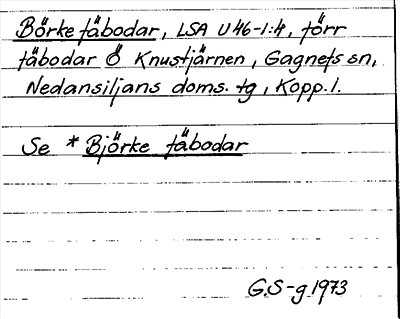 Börke fäbodar, LSA U46-1:4, förr
fäbodar Ö Knustjärnen, Gagnefs sn,
Nedansiljans doms. tg, Kopp. l.
Se * Björke fäbodar
G.S-g 1973